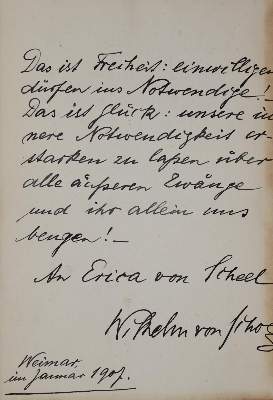 Das ist Freiheit: einwilligen
dürfen ins Notwendige! –
Das ist Glück: unsere in
nere Notwendigkeit er-
starken zu laßen über
alle äußeren Zwänge
und ihr allein uns
beugen! –
An Erica von Scheel
Wilhelm von Scholz
Weimar,
im Januar 1907.